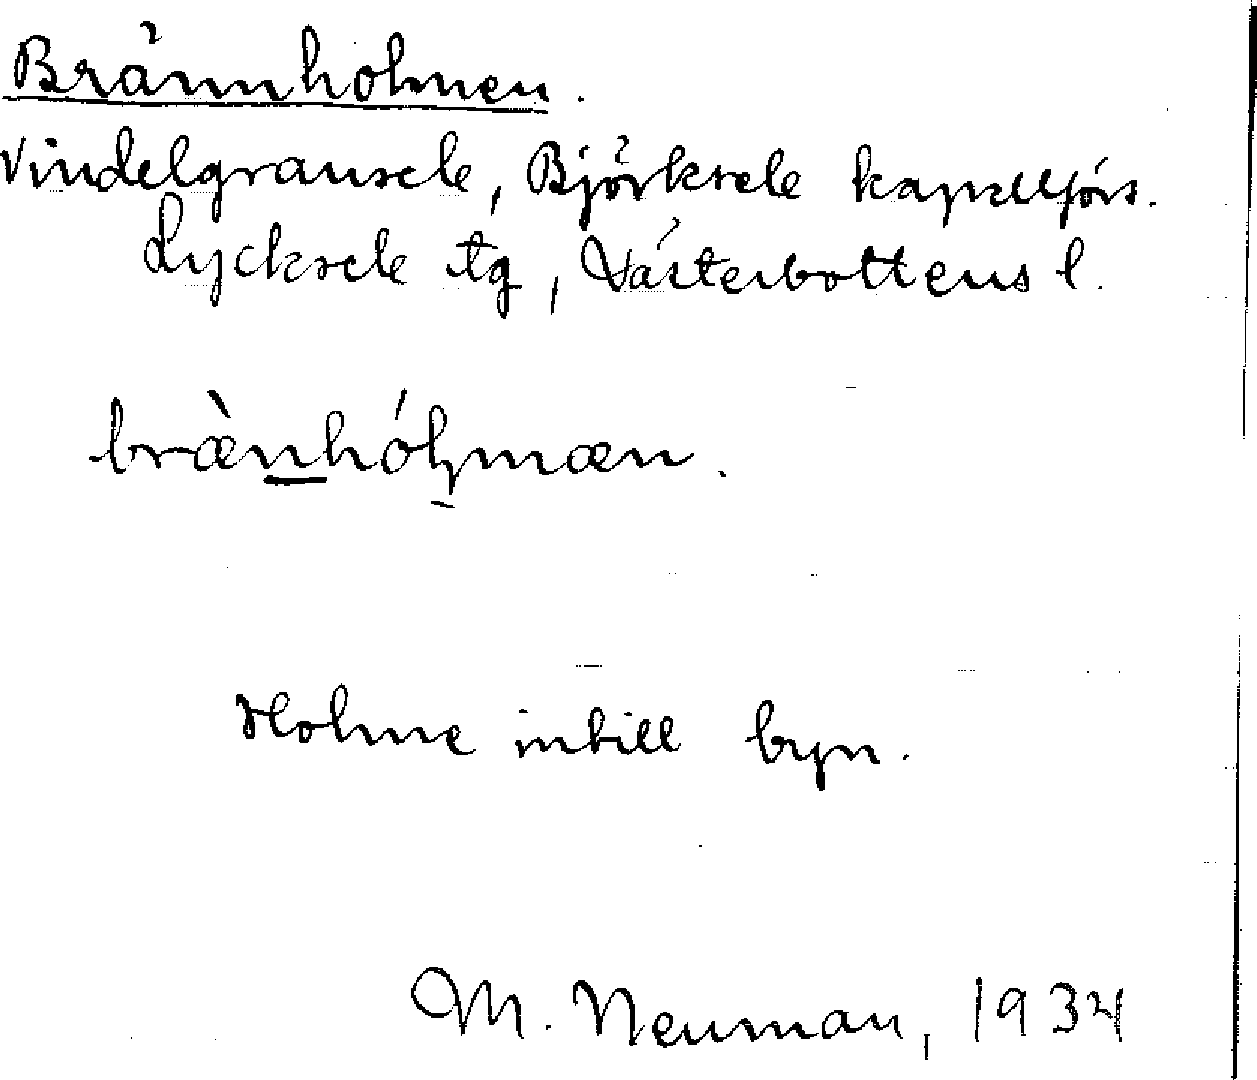 Brännholmen.
Vindelgransele, Björksele kapellförs.
Lycksele tg, Västerbottens l.
bræ̀nhóḷmæn.
Holme intill byn.
M. Neuman, 1934